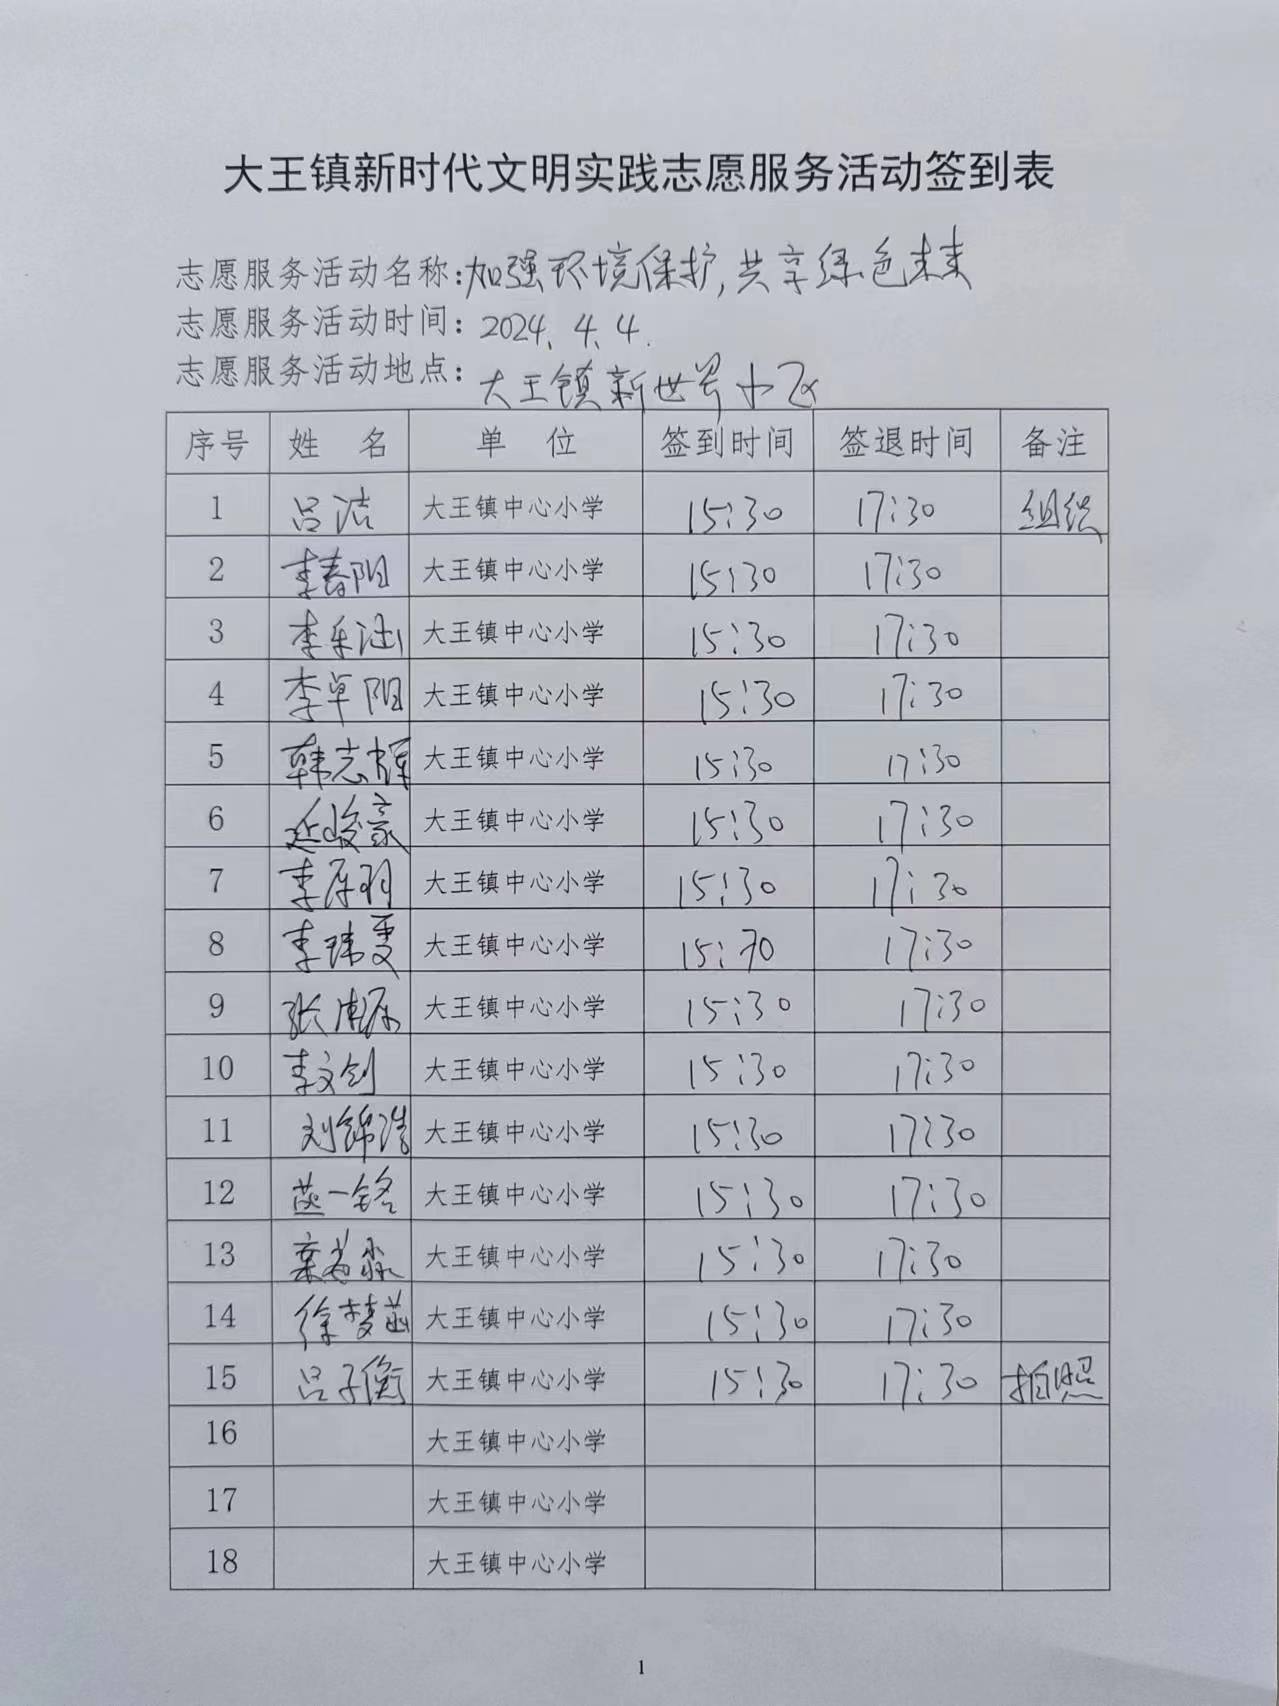 大王镇新时代文明实践志愿服务活动签到表
志愿服务活动名称:加强环境保护,共享绿色未来
志愿服务活动时间:2024.4.4.
志愿服务活动地点:大王镇新世界小区
序号 姓 名 单 位 签到时间 签退时间 备注
1 吕洁 大王镇中心小学 15:30 17:30 组织
2 李春阳 大王镇中心小学 15:30 17:30
3 李乐涵 大王镇中心小学 15:30 17:30
4 李卓阳 大王镇中心小学 15:30 17:30
5 韩志辉 大王镇中心小学 15:30 17:30
6 延峻豪 大王镇中心小学 15:30 17:30
7 李原羽 大王镇中心小学 15:30 17:30
8 李玮雯 大王镇中心小学 15:30 17:30
9 张 大王镇中心小学 15:30 17:30
10 李文创 大王镇中心小学 15:30 17:30
11 刘锦浩 大王镇中心小学 15:30 17:30
12 一铭 大王镇中心小学 15:30 17:30
13 大王镇中心小学 15:30 17:30
14 徐梦菡 大王镇中心小学 15:30 17:30
15 吕子衡 大王镇中心小学 15:30 17:30 拍照
16 大王镇中心小学
17 大王镇中心小学
18 大王镇中心小学
1